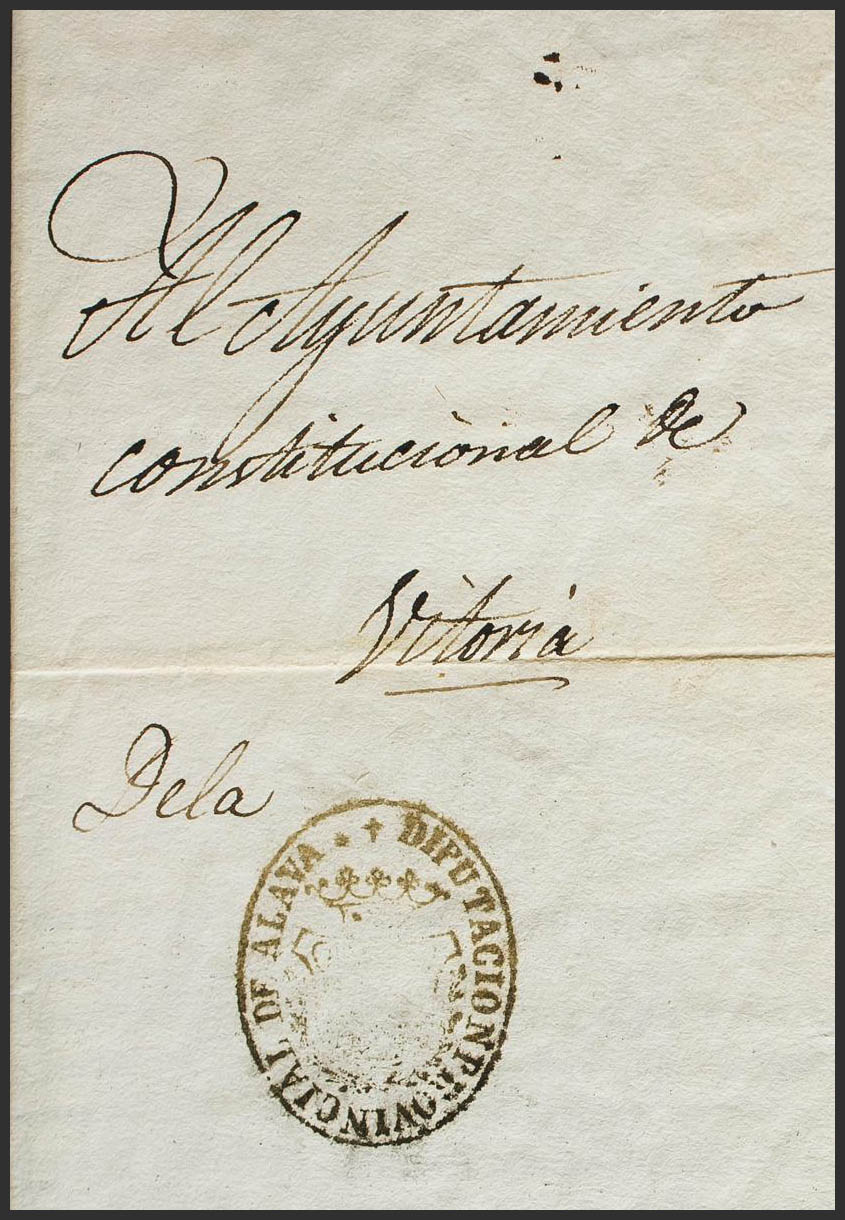 Al Ayuntamiento
constitucional de
Vitoria
Dela
DIPUTACION PROVINCIAL DE ALAVA